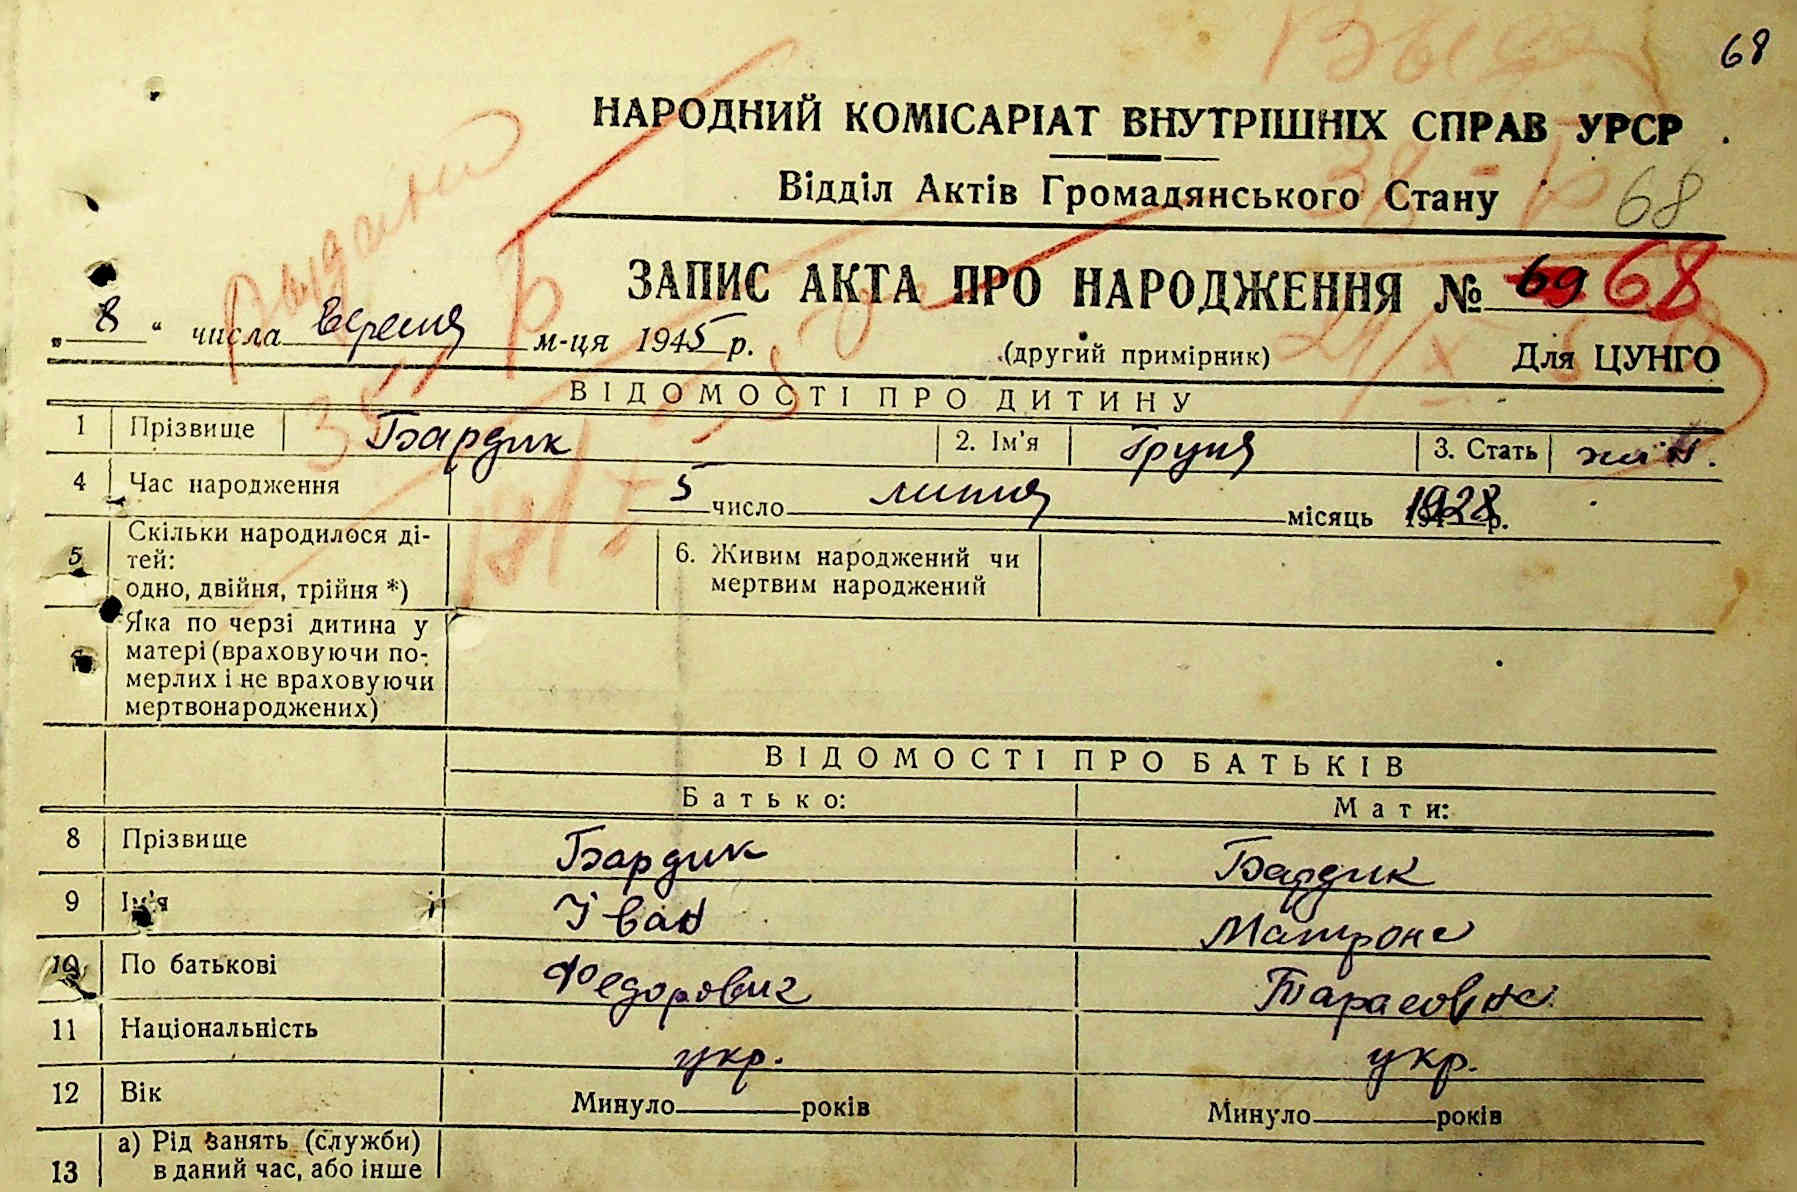 68
НАРОДНИЙ КОМІСАРІАТ ВНУТРІШНІХ СПРАВ УРСР
Відділ Актів Громадянського Стану 68
ЗАПИС АКТА ПРО НАРОДЖЕННЯ № 69 68
„8“ числа вересня м-ця 1945 р. (другий примірник) Для ЦУНГО
ВІДОМОСТІ ПРО ДИТИНУ
1 Прізвище Бардик 2. Ім'я Груня 3. Стать жін.
4 Час народження 5 число липня місяць 1928 р.
5 Скільки народилося ді-
тей:
одно, двійня, трійня *)
6. Живим народжений чи
мертвим народжений
Яка по черзі дитина у
матері (враховуючи по-
мерлих і не враховуючи
мертвонароджених)
ВІДОМОСТІ ПРО БАТЬКІВ
Батько: Мати:
8 Прізвище Бардик Бардик
9 Ім'я Іван Матрона
10 По батькові Федорович Тарасовна
11 Національність укр. укр.
12 Вік Минуло років Минуло років
13 а) Рід занять (служби)
в даний час, або інше